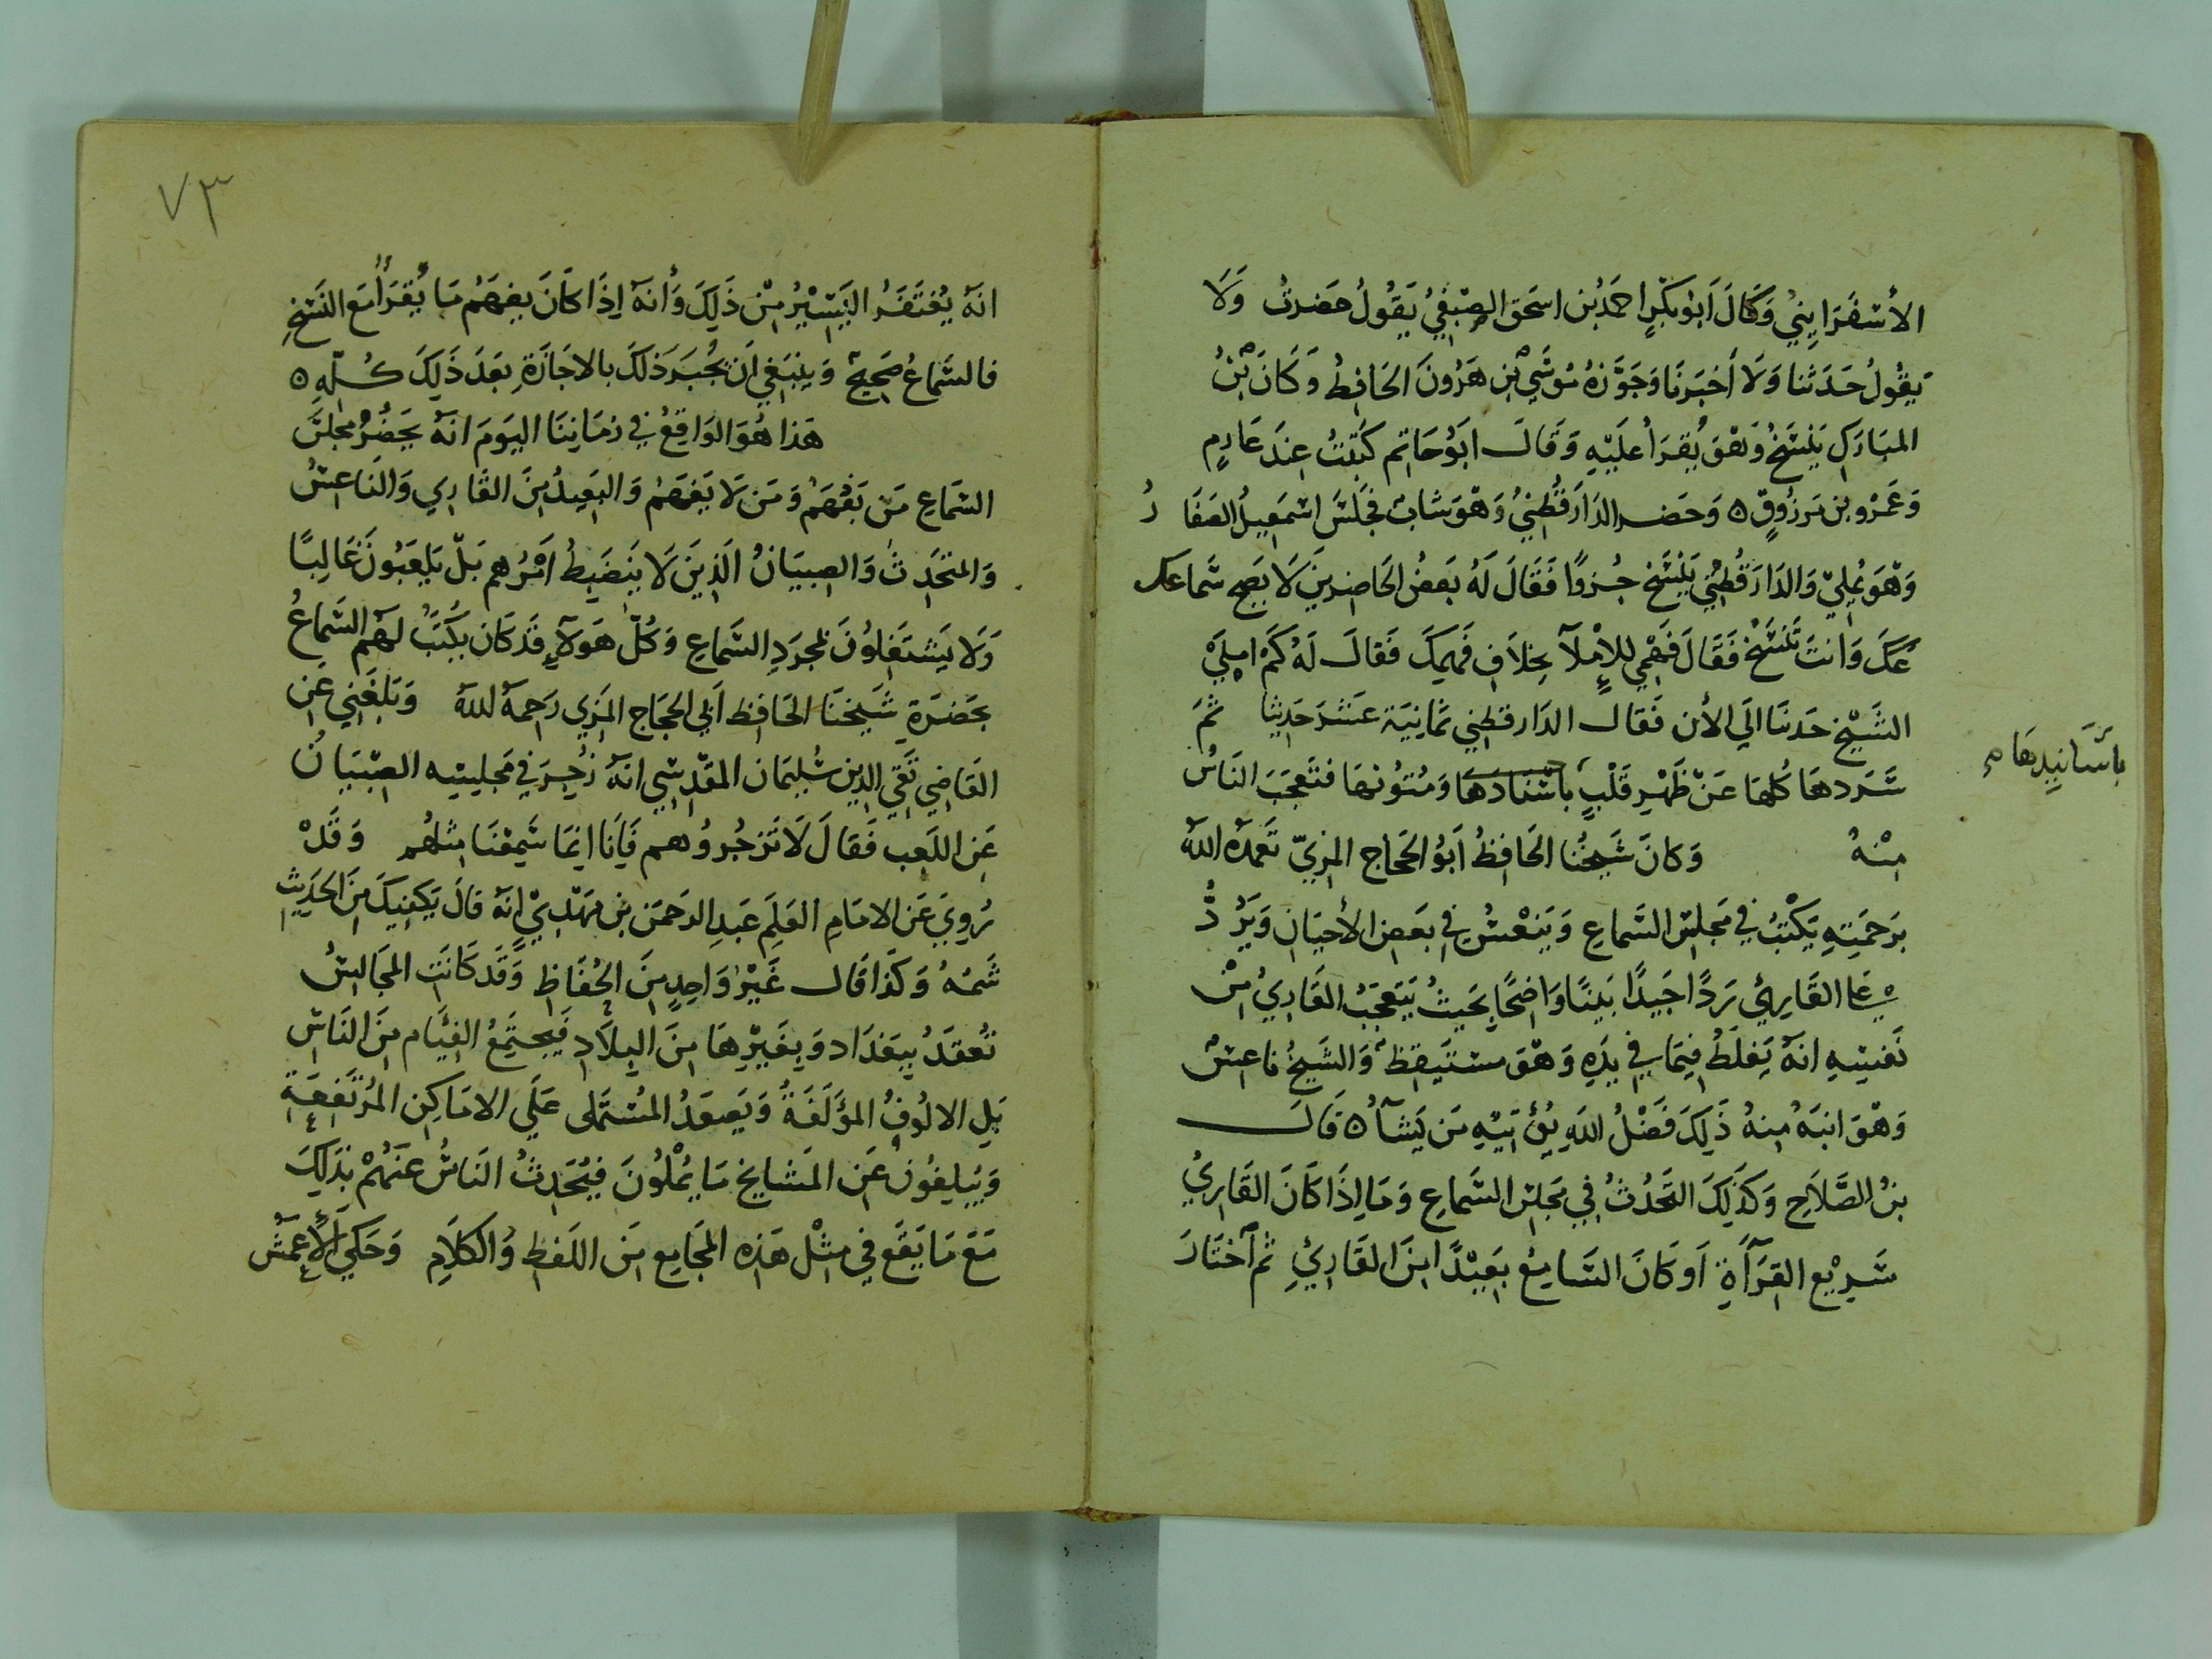 الأسفَرَايِنيُ وَقَالَ أَبُو بَكرٍ احمَدُ بن اسحَق الصِبغيُ يَقُولُ حَضَرتُ وَلَا
يَقُولُ حَدَثنا وَلَا أخبَرَنَا وَجَوَّزهُ مُوسَي بْن هَرُونَ الحَافِظُ وَكَانَ بْنُ
المبَارَكِ يَنْسَخُ وَهْوَ يُقرَأ علَيْهِ وَقَالَ ابَوُ حَاتِم كَتَبْتُ عِندَ عَارِمٍ
وَعَمْرو بن مَرزُوقٍ ٥ وَحَضر الدَارَقُطنيُ وَهْوَ شَابٌ مجَلسَ اسْمَعِيلُ الصَفَارُ
وَهْوَ يُملِيّ وَالدَارَقُطنُي يَنْسَخ جُزوًا فَقَالَ لَهُ بَعضُ الحَاضِرينَ لَا يَصِح سَماعكَ
وَانتَ تَنسَخْ فَقَالَ فَهْمِي لِلإِمْلآءِ بخِلَافِ فَهمِكَ فَقالَ لَهُ كَمْ املَيْ
الشَيْخ حَدثنَا اليَ الأن فَقَال الدَارقطِني ثمَانِيَة عَشرَ حَدِيثا ثمَ
سَرَدهَا كُلهَا عَنْ ظَهْرِ قَلْبٍ بأَسْنَادَهَا وَمُتوُنهَا فتَعجَبَ النَاسُ
بأَسَانِيدِهَا م
مِنْهُ وَكانَ شَيخُنا الحَافِظُ أَبَوُ الحَجاج المِزيّ تَغمَده اللهُ
بَرَحمَتِهِ يَكْتبُ في مَجلسْ السَماعِ وَيَنْعسُ في بَعَض الأحيَانِ وَيَرُدُّ
عَلَى القَاريُ رَدًا جَيدًا بَينًا وَاضحًا بحَيثُ يَتعجَبُ القَارِيُ مِنْ
نَفسِهِ انهُ يَغلَطُ فِيمَا في يدِهِ وَهْوَ مستَيقِظٌ وَالشَيخُ ناعسٌ
وَهْوَ انبَهُ مِنهُ ذَلِكَ فَضْلُ اللهِ يُؤتِيْهِ مَن يَشآءُ ٥ قَالَ
بنُ الصَّلَاحِ وَكذَلِكَ التَحَدُثُ في مَجلسْ السَماعِ وَمَا إِذَا كَانَ القَاريُ
سَرِيْع القِرَآءَةِ اَوكَانَ السَامِعُ بَعِيْدًا مِنَ القَارِيُ ثم اَختَارَ
٧٣
انهُ يُغتَفَرُ اليَسِيْرُ مِنْ ذَلِكَ وَأَنهُ إِذَا كَانَ يفهَمُ مَا يُقرَأُ مَع النَسْخِ
فالسَمَاعُ صَحِيحٌ وَيَنبَغي اَن يُجُبَرَ ذَلكَ بالاجَازَةِ بَعدَ ذَلِكَ كُلِهِ ٥
هَذا هُوَ الوَاقِعُ في زمَانِنَا اليَومَ انهُ يَحضُرُ مجلسَ
السَماعِ مَن يَفْهَمُ وَمَن لَا يَفهَمُ وَالبَعِيدُ مِنَ القَارِي وَالنَاعسُ
وَالمتحَدِثُ وَالصِبيَانُ الذِينَ لَا يَنضَبِطُ اَمْرُهم بَلْ يَلعَبُونَ غَالِبًا
وَلَا يَشتَغِلوُنَ لمجرَدِ السَمَاعِ وَكُلُ هَوُلآءِ قَد كَانَ يكُتَبُ لهُم السَماعُ
بَحضرَةِ شَيخنَا الحَافِظ اَبي الحَجَاج المِزِي رَحِمهُ اللهُ وَبَلغَني عَن
القَاضِي تَقِي الدِين سُليمَان المقدِسِي انهُ زُجِرَ في مَجلِسِهِ الصِبيَانُ
عَن اللَعِب فَقَالَ لَا تَزجُروُهم فَإنَا انمَا سَمِعْنَا مثلهُم وَقَدْ
رُوِيَ عَن الامَامِ العَلَم عَبدِ الرَحمَن بن مَهْدِيْ انَهُ قالَ يَكفِيكَ مِنَ الحَدِيثِ
شَمهُ وَكَذا قَال غَيْرُ وَاحِدٍ مِنَ الحُفَاظِ وَقَد كَانَت المجَالِسُ
تُعقدُ ببَغدَاد وَبِغَيْرِهَا مِنَ البِلَادِ فَيجتَمِعُ الفِئَام مِنَ النَاسِ
بَلِ الالُوفُ المؤَلَفَةُ وَيَصعَدُ المُستَملى عَلَى الامَاكِنِ المُرْتَفعَةِ
وَيبَلِغُونَ عَن المَشايخ مَا يُمْلُونَ فيُحَدِثُ النَاسُ عَنهُمْ بذَلِكَ
مَعَ مَا يَقَع في مثْل هَذِه المجَامِع مِنَ اللَغطِ وَالكَلَامِ وَحَكي الأعمَش